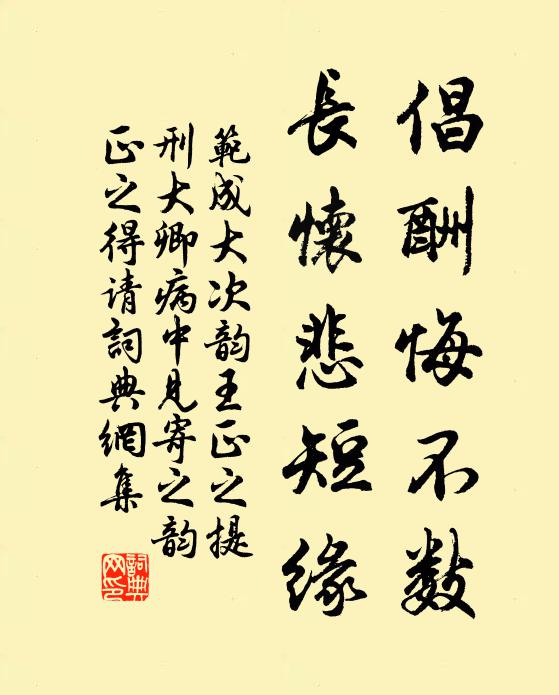 倡酬悔不数
長懷悲短缘
範成大次韵王正之提
刑大卿病中見寄之韵
正之得请詞典網集
詞典网印